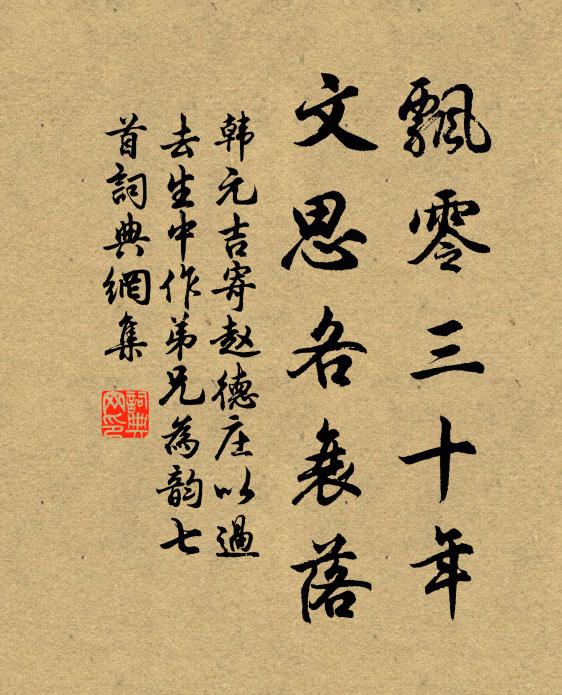 飄零三十年
文思各衰落
韩元吉寄赵德庄以過
去生中作弟兄為韵七
首詞典網集
詞典网印